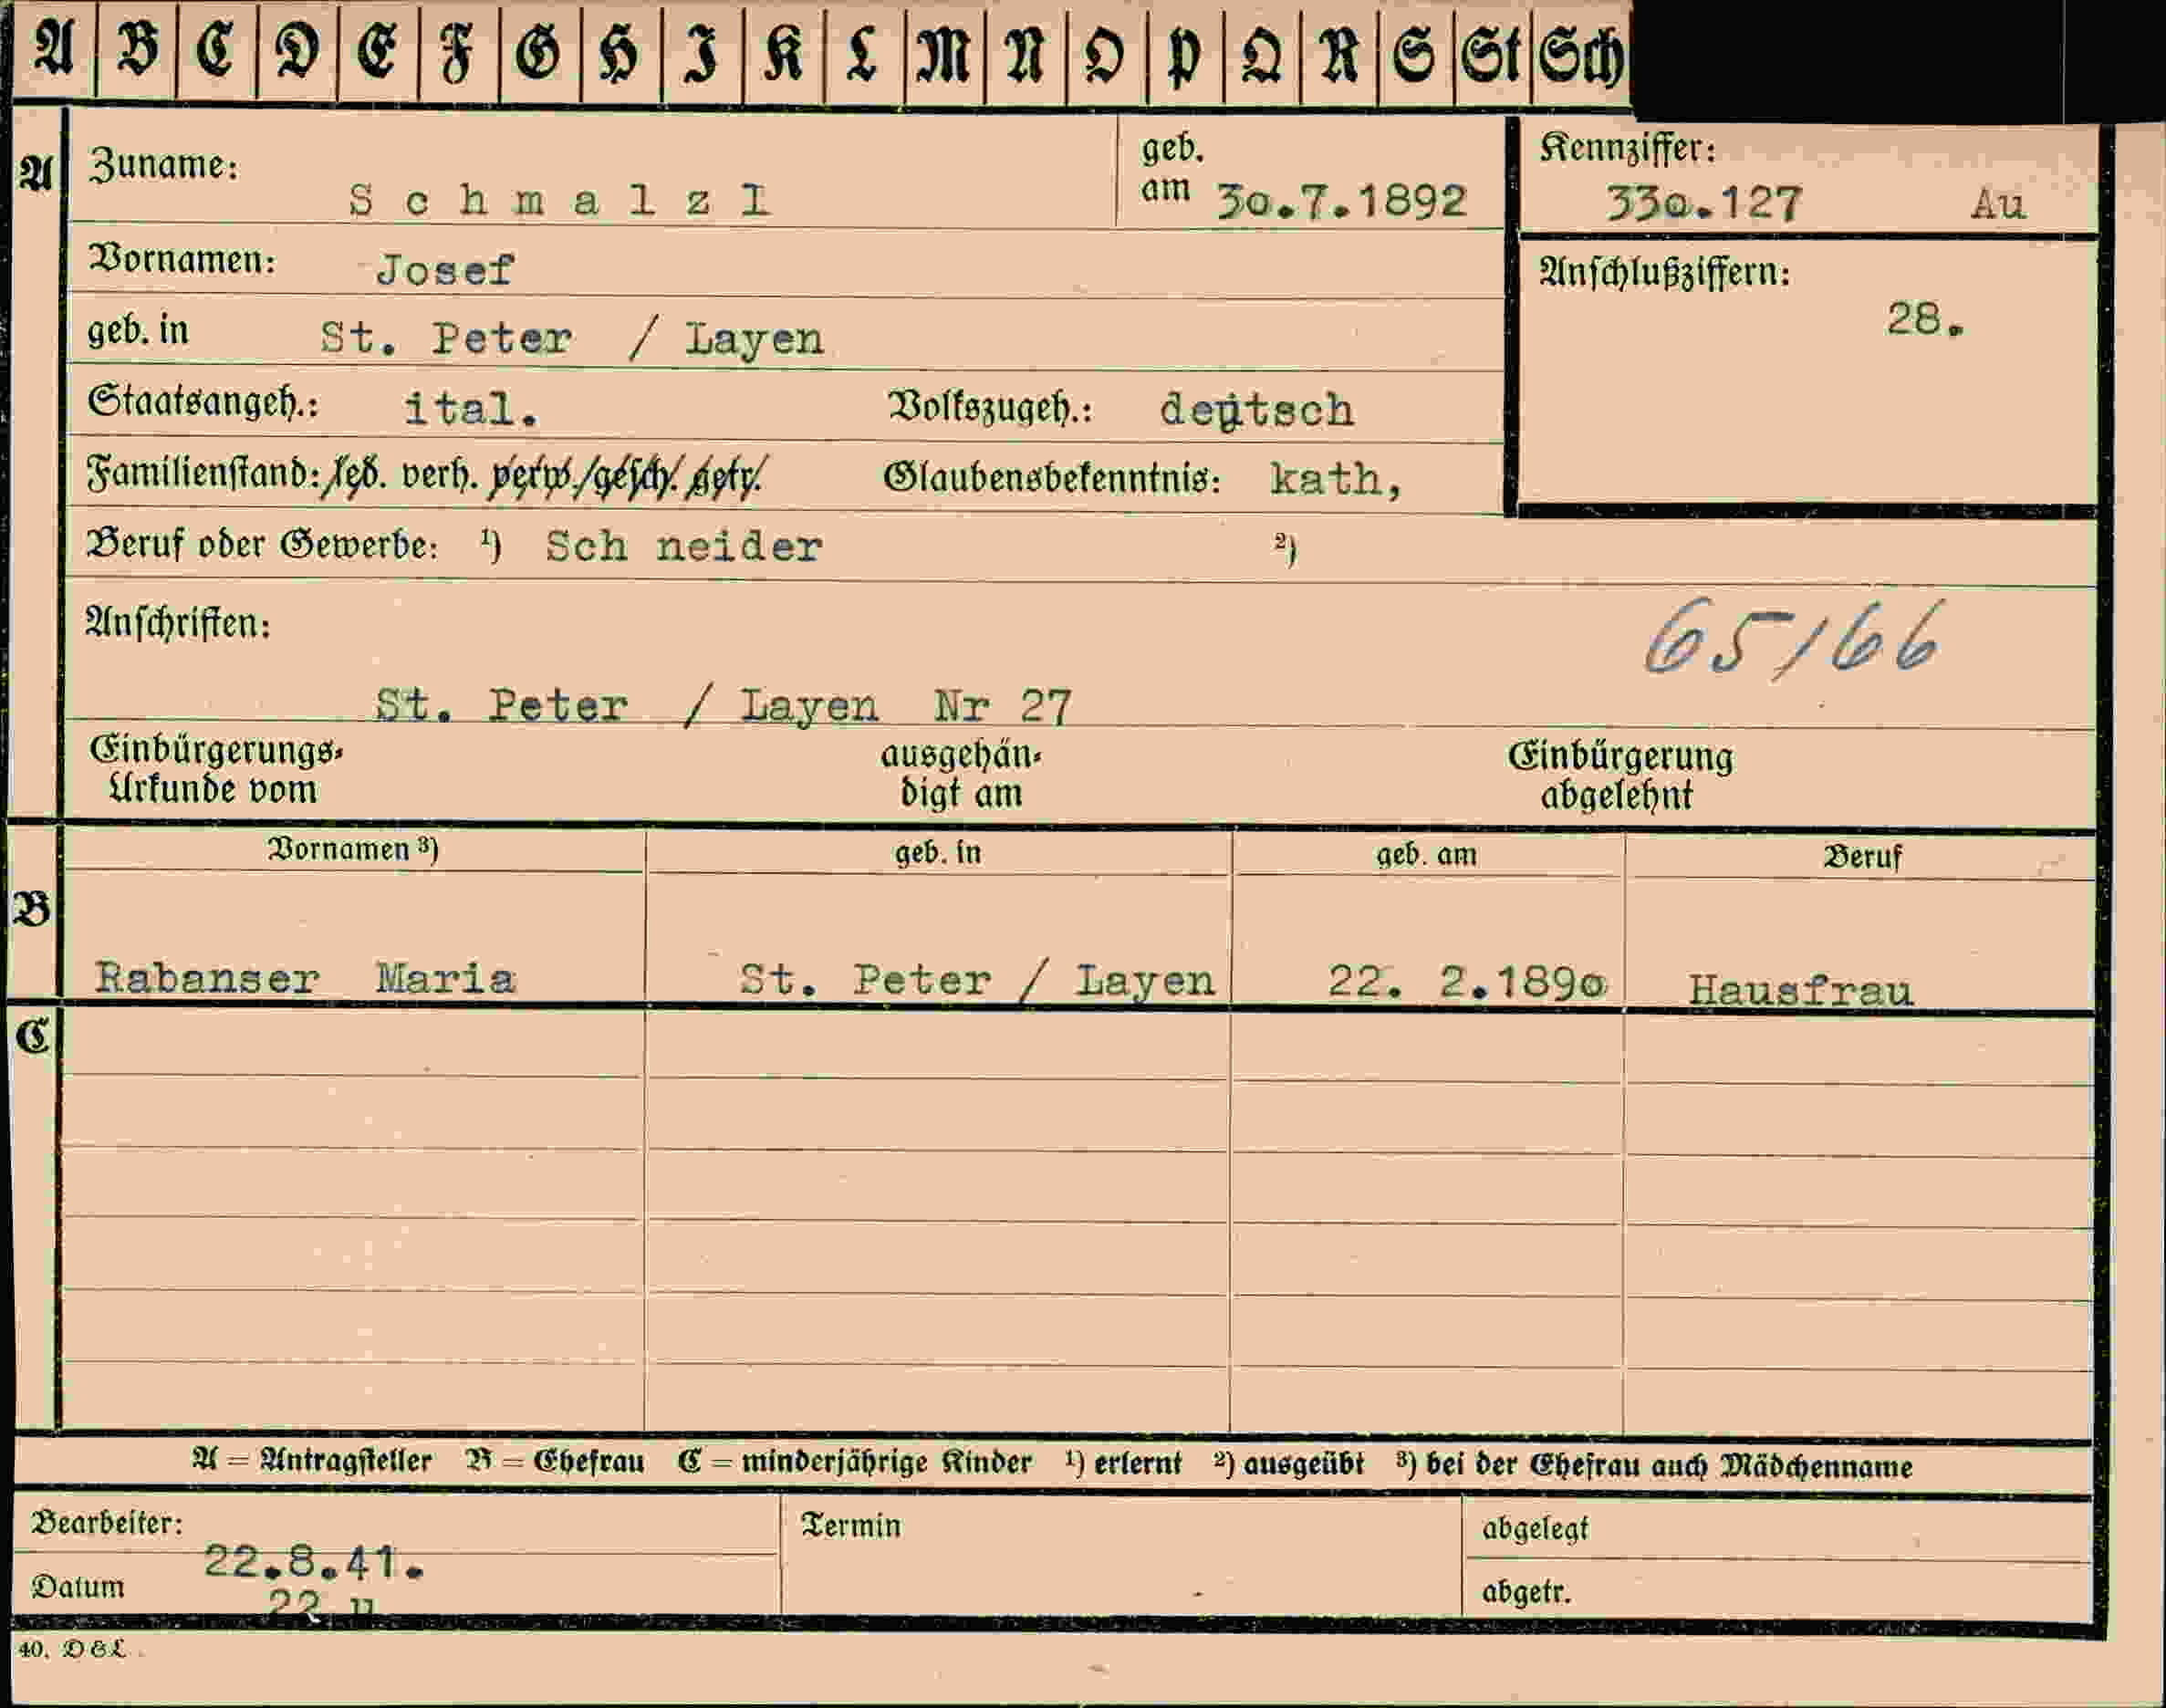 A B C D E F G H I K L M N O P Q R S St Sch
A Zuname: S c h m a l z I geb. am 3o.7.1892 Kennziffer: 33o.127 Au
Vornamen: Josef Anschlußziffern: 28.
geb. in St. Peter / Layen
Staatsangeh.: ital. Volkszugeh.: deutsch
Familienstand: led. verh. verw. gesch. getr. Glaubensbekenntnis: kath,
Beruf oder Gewerbe: ¹) Sch neider ²)
Anschriften: 65/66
St. Peter / Layen Nr 27
Einbürgerungs- ausgehän- Einbürgerung
Urkunde vom digt am abgelehnt
Vornamen ³) geb. in geb. am Beruf
B
Rabanser Maria St. Peter / Layen 22. 2.189o Hausfrau
C
A = Antragsteller B = Ehefrau C = minderjährige Kinder ¹) erlernt ²) ausgeübt ³) bei der Ehefrau auch Mädchenname
Bearbeiter: Termin abgelegt
22.8.41.
Datum abgetr.
40. D&L.